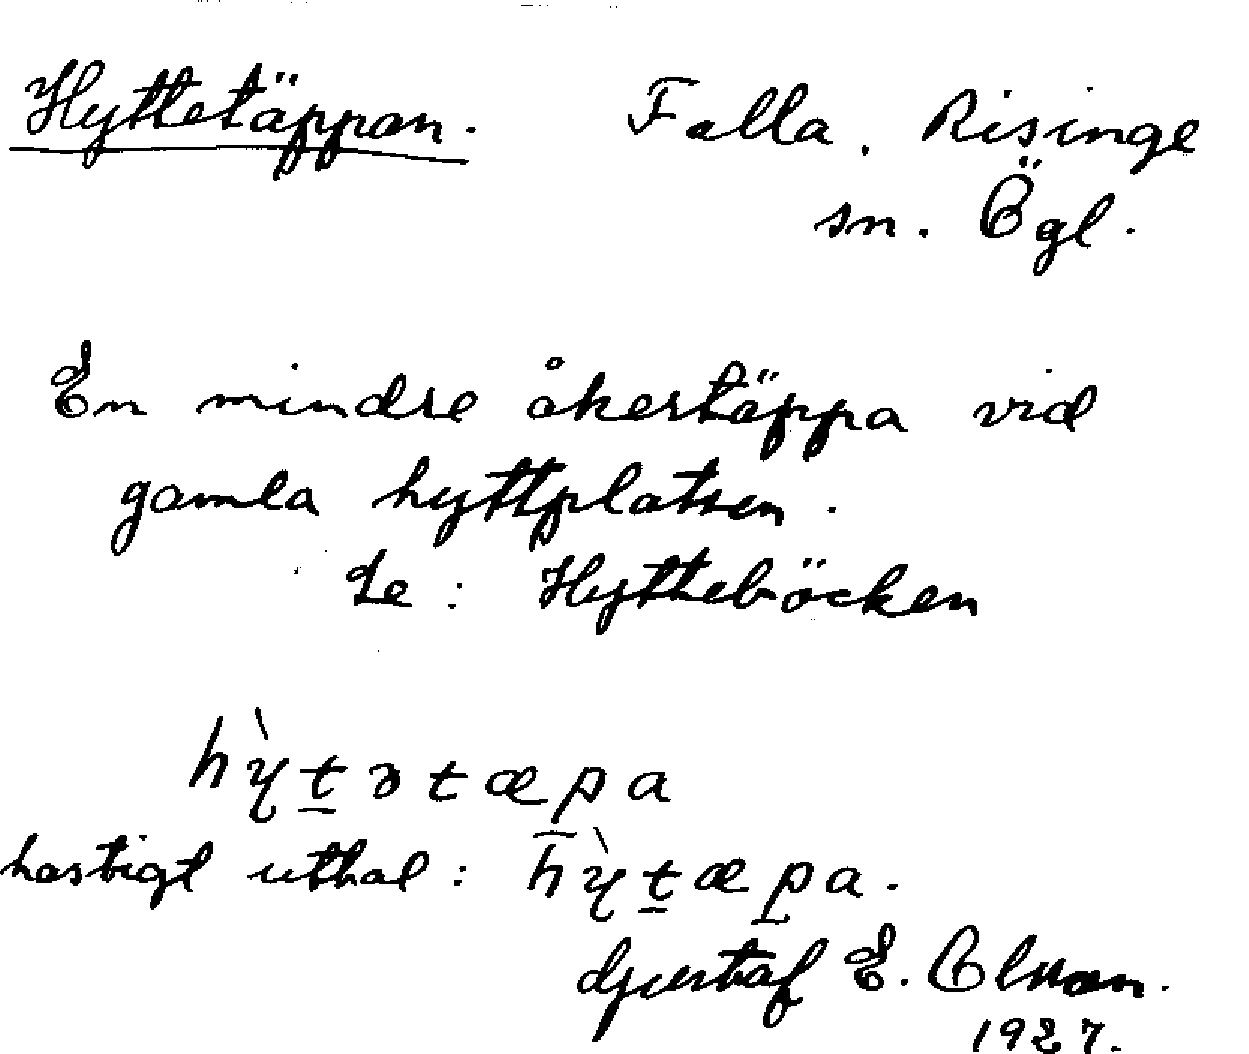 Hyttetäppan. Falla. Risinge
sn. Ögl.
En mindre åkertäppa vid
gamla hyttplatsen.
Se: Hyttebäcken
hỳ̖t̲ətæp̲a
hastigt uttal: hỳ̖t̲æp̲a.
Gustaf E. Olsson.
1927.